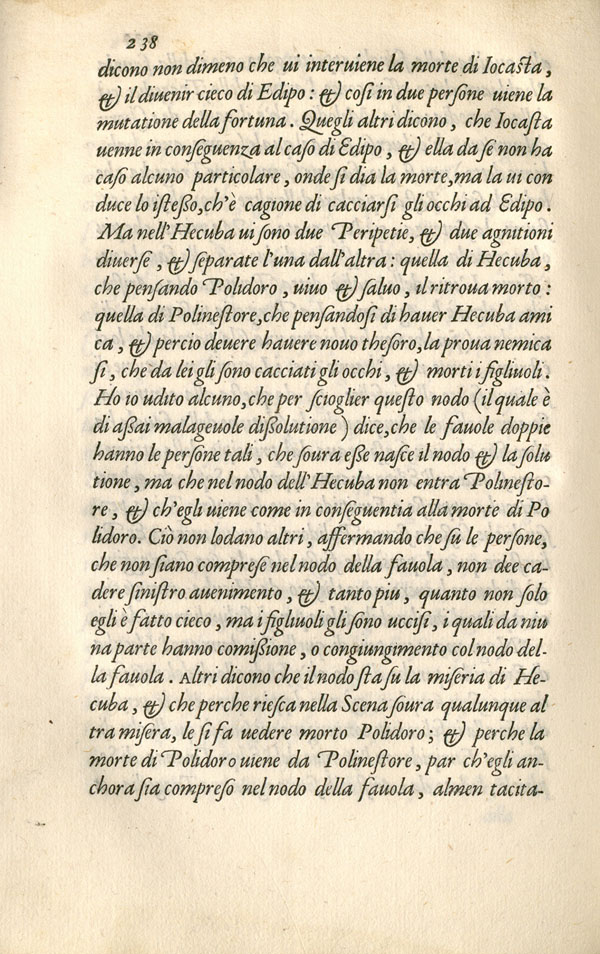 238
dicono non dimeno che ui interuiene la morte di Iocaſta,
& il diuenir cieco di Edipo: & coſi in due perſone uiene la
mutatione della fortuna. Quegli altri dicono, che Iocaſta
uenne in conſeguenza al caſo di Edipo, & ella da ſe non ha
caſo alcuno particolare, onde ſi dia la morte, ma la ui con
duce lo iſteßo, ch'è cagione di cacciarſi gli occhi ad Edipo.
Ma nell'Hecuba ui ſono due Peripetie, & due agnitioni
diuerſe, & ſeparate l'una dall'altra: quella di Hecuba,
che penſando Polidoro, uiuo & ſaluo, il ritroua morto:
quella di Polineſtore, che penſandoſi di hauer Hecuba ami
ca, & percio deuere hauere nouo theſoro, la proua nemica
ſi, che da lei gli ſono cacciati gli occhi, & morti i figliuoli.
Ho io udito alcuno, che per ſcioglier queſto nodo (il quale è
di aßai malageuole dißolutione) dice, che le fauole doppie
hanno le perſone tali, che ſoura eße naſce il nodo & la ſolu
tione, ma che nel nodo dell'Hecuba non entra Polineſto-
re, & ch'egli uiene come in conſeguentia alla morte di Po
lidoro. Ciò non lodano altri, affermando che sù le perſone,
che non ſiano compreſe nel nodo della fauola, non dee ca-
dere ſiniſtro auenimento, & tanto piu, quanto non ſolo
egli è fatto cieco, ma i figliuoli gli ſono ucciſi, i quali da niu
na parte hanno comißione, o congiungimento col nodo del-
la fauola. Altri dicono che il nodo ſta su la miſeria di He-
cuba, & che perche rieſca nella Scena ſoura qualunque al
tra miſera, le ſi fa uedere morto Polidoro; & perche la
morte di Polidoro uiene da Polineſtore, par ch'egli an-
chora ſia compreſo nel nodo della fauola, almen tacita-